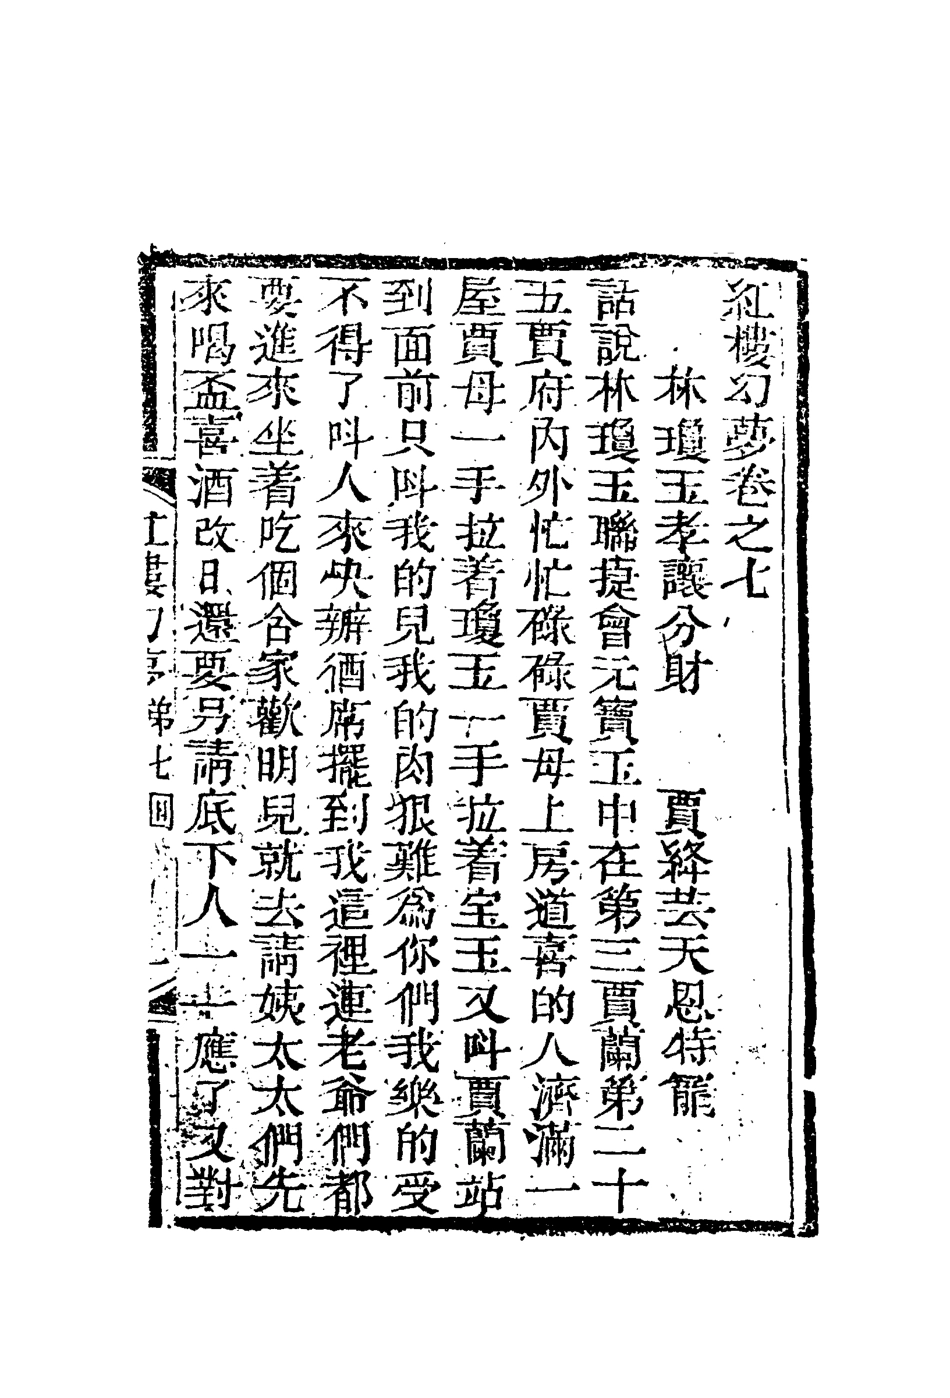 紅樓幻夢卷之七
林瓊玉孝讓分財　賈絳芸天恩特寵
話說林瓊玉聯捷會元寶玉中在第三賈蘭第二十
五賈府內外忙忙碌碌賈母上房道喜的人濟滿一
屋賈母一手拉着瓊玉一手拉着宝玉又呌賈蘭站
到面前只呌我的兒我的肉狠難爲你們我樂的受
不得了呌人來快辦酒席擺到我這裡連老爺們都
要進來坐着吃個合家歡明兒就去請姨太太們先
來喝盃喜酒改日還要另請底下人一一應了又對
紅樓幻夢第七回